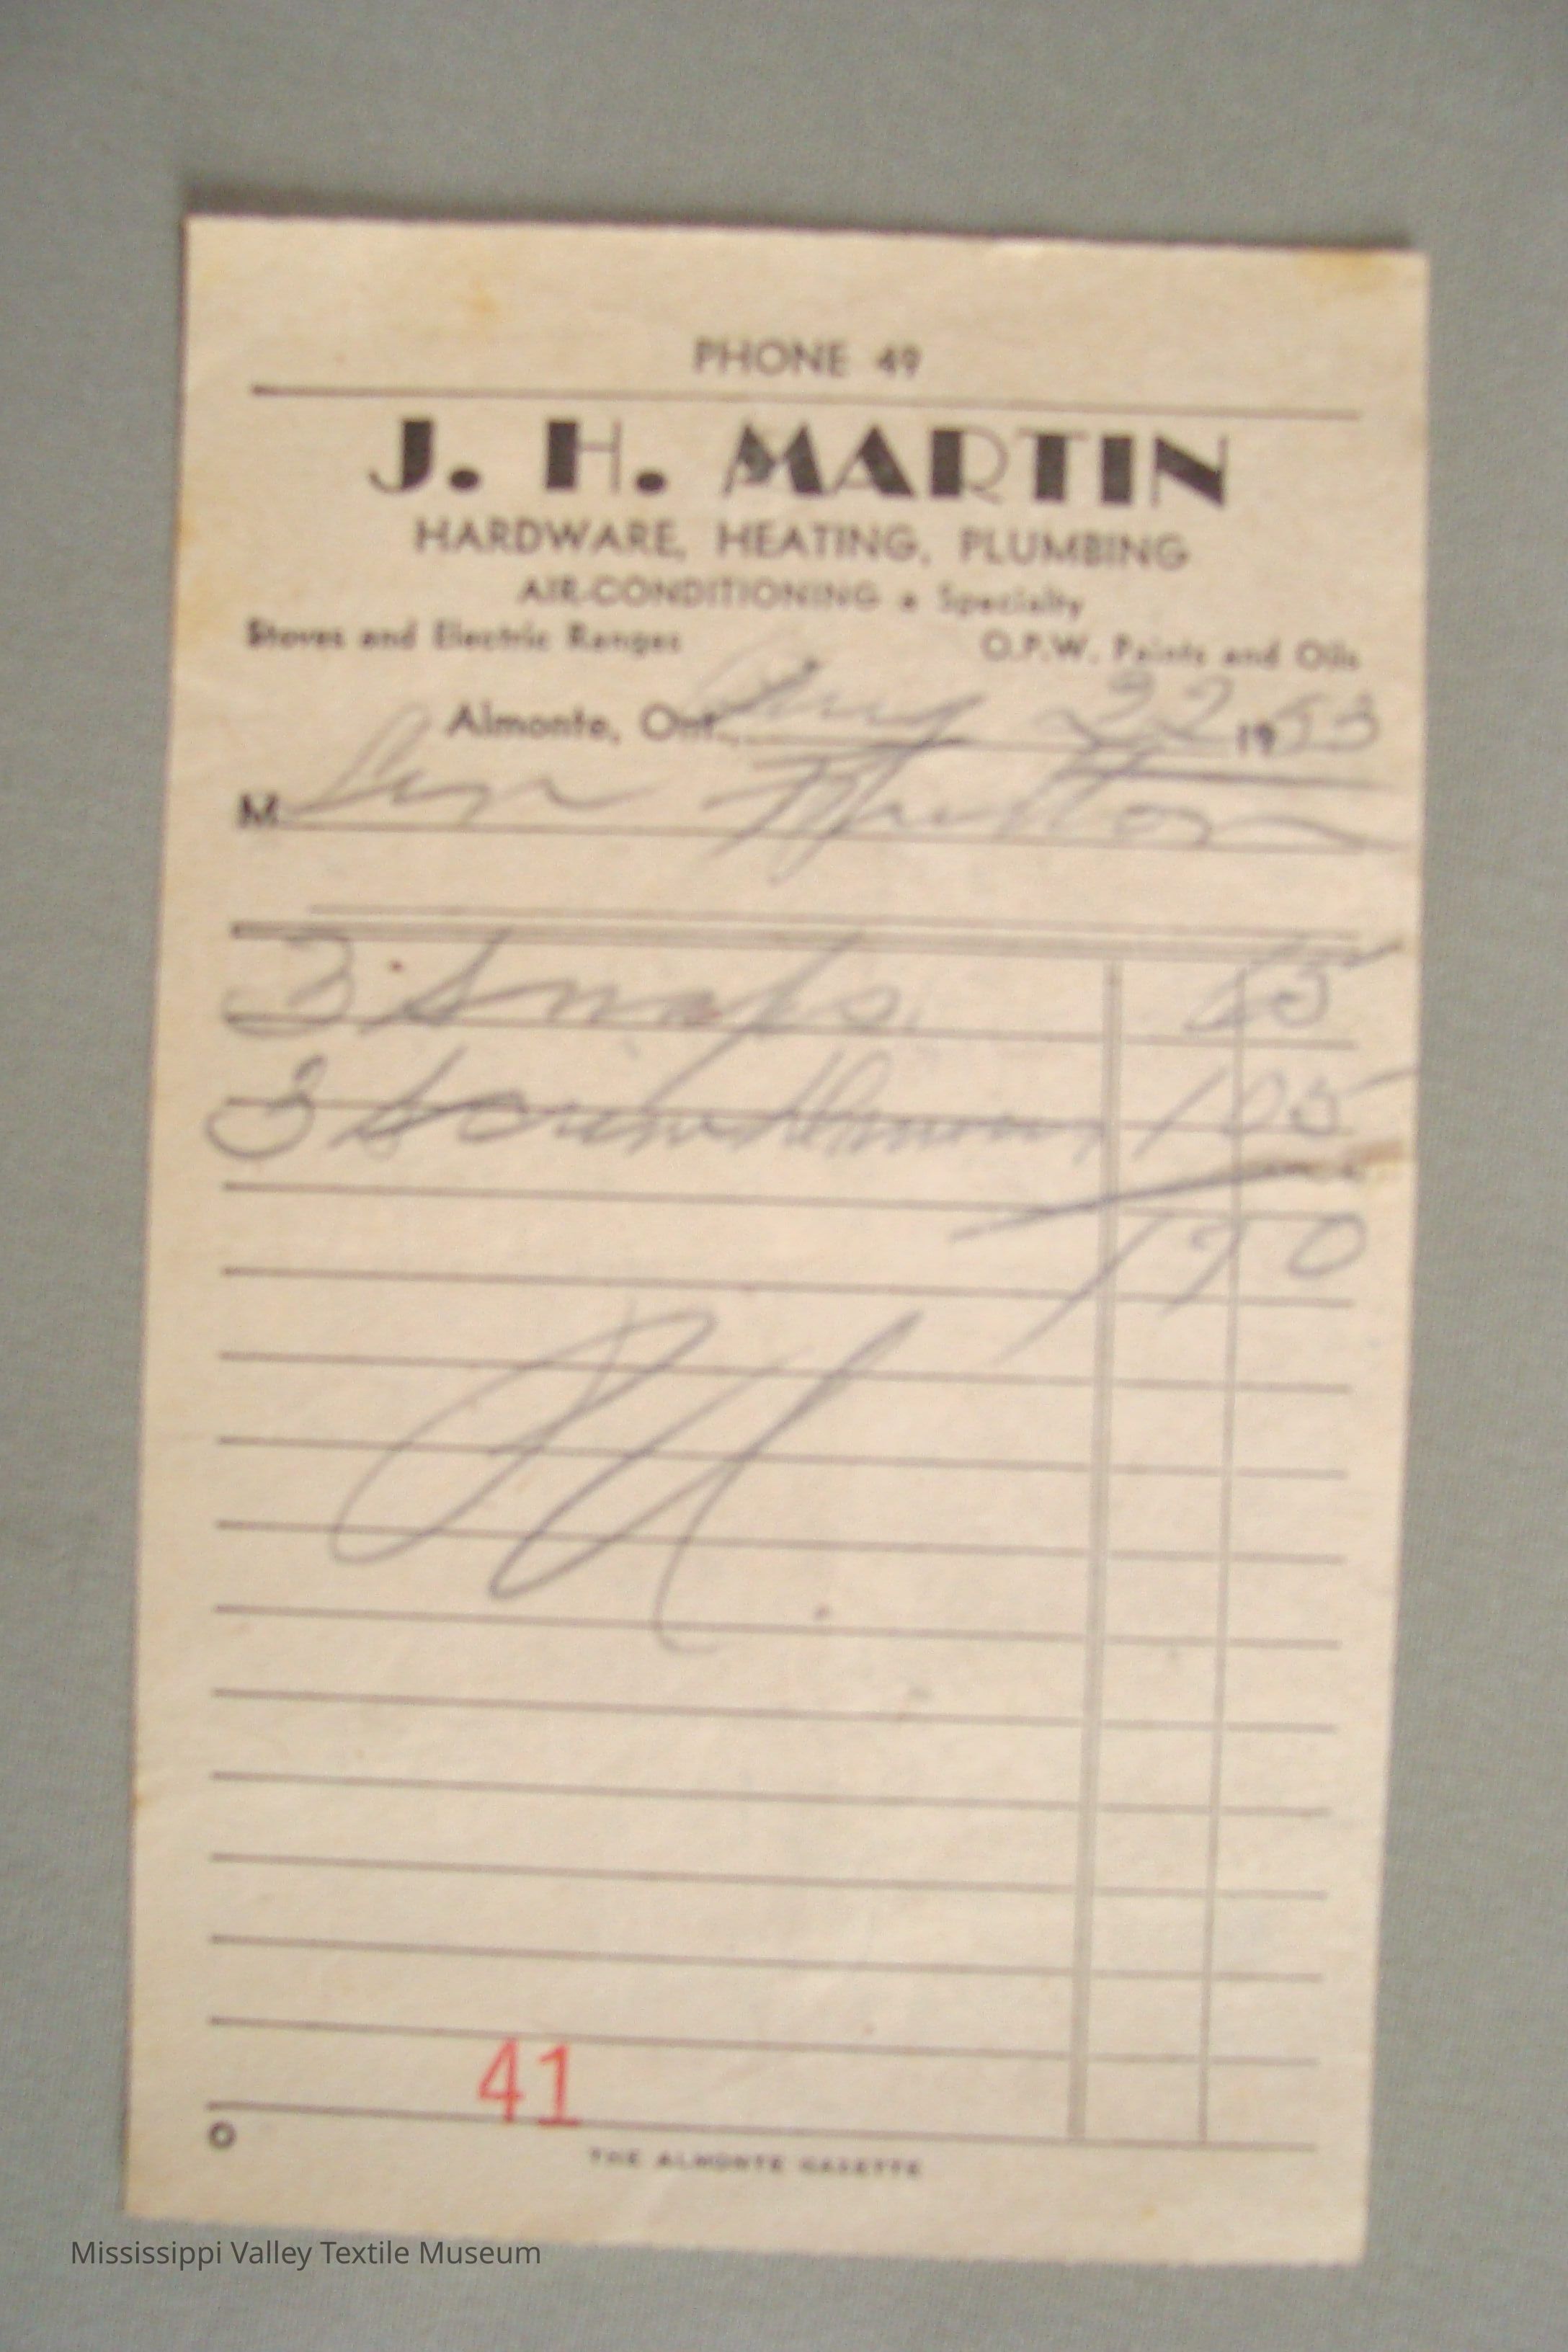 PHONE 49
J. H. MARTIN
HARDWARE, HEATING, PLUMBING
AIR-CONDITIONING a Specialty
Stoves and Electric Ranges O.P.W. Paints and Oils
Almonte, Ont. Aug 22 1953
M
3 Snaps 65
3 105
170
41
O
THE ALMONTE GAZETTE
Mississippi Valley Textile Museum